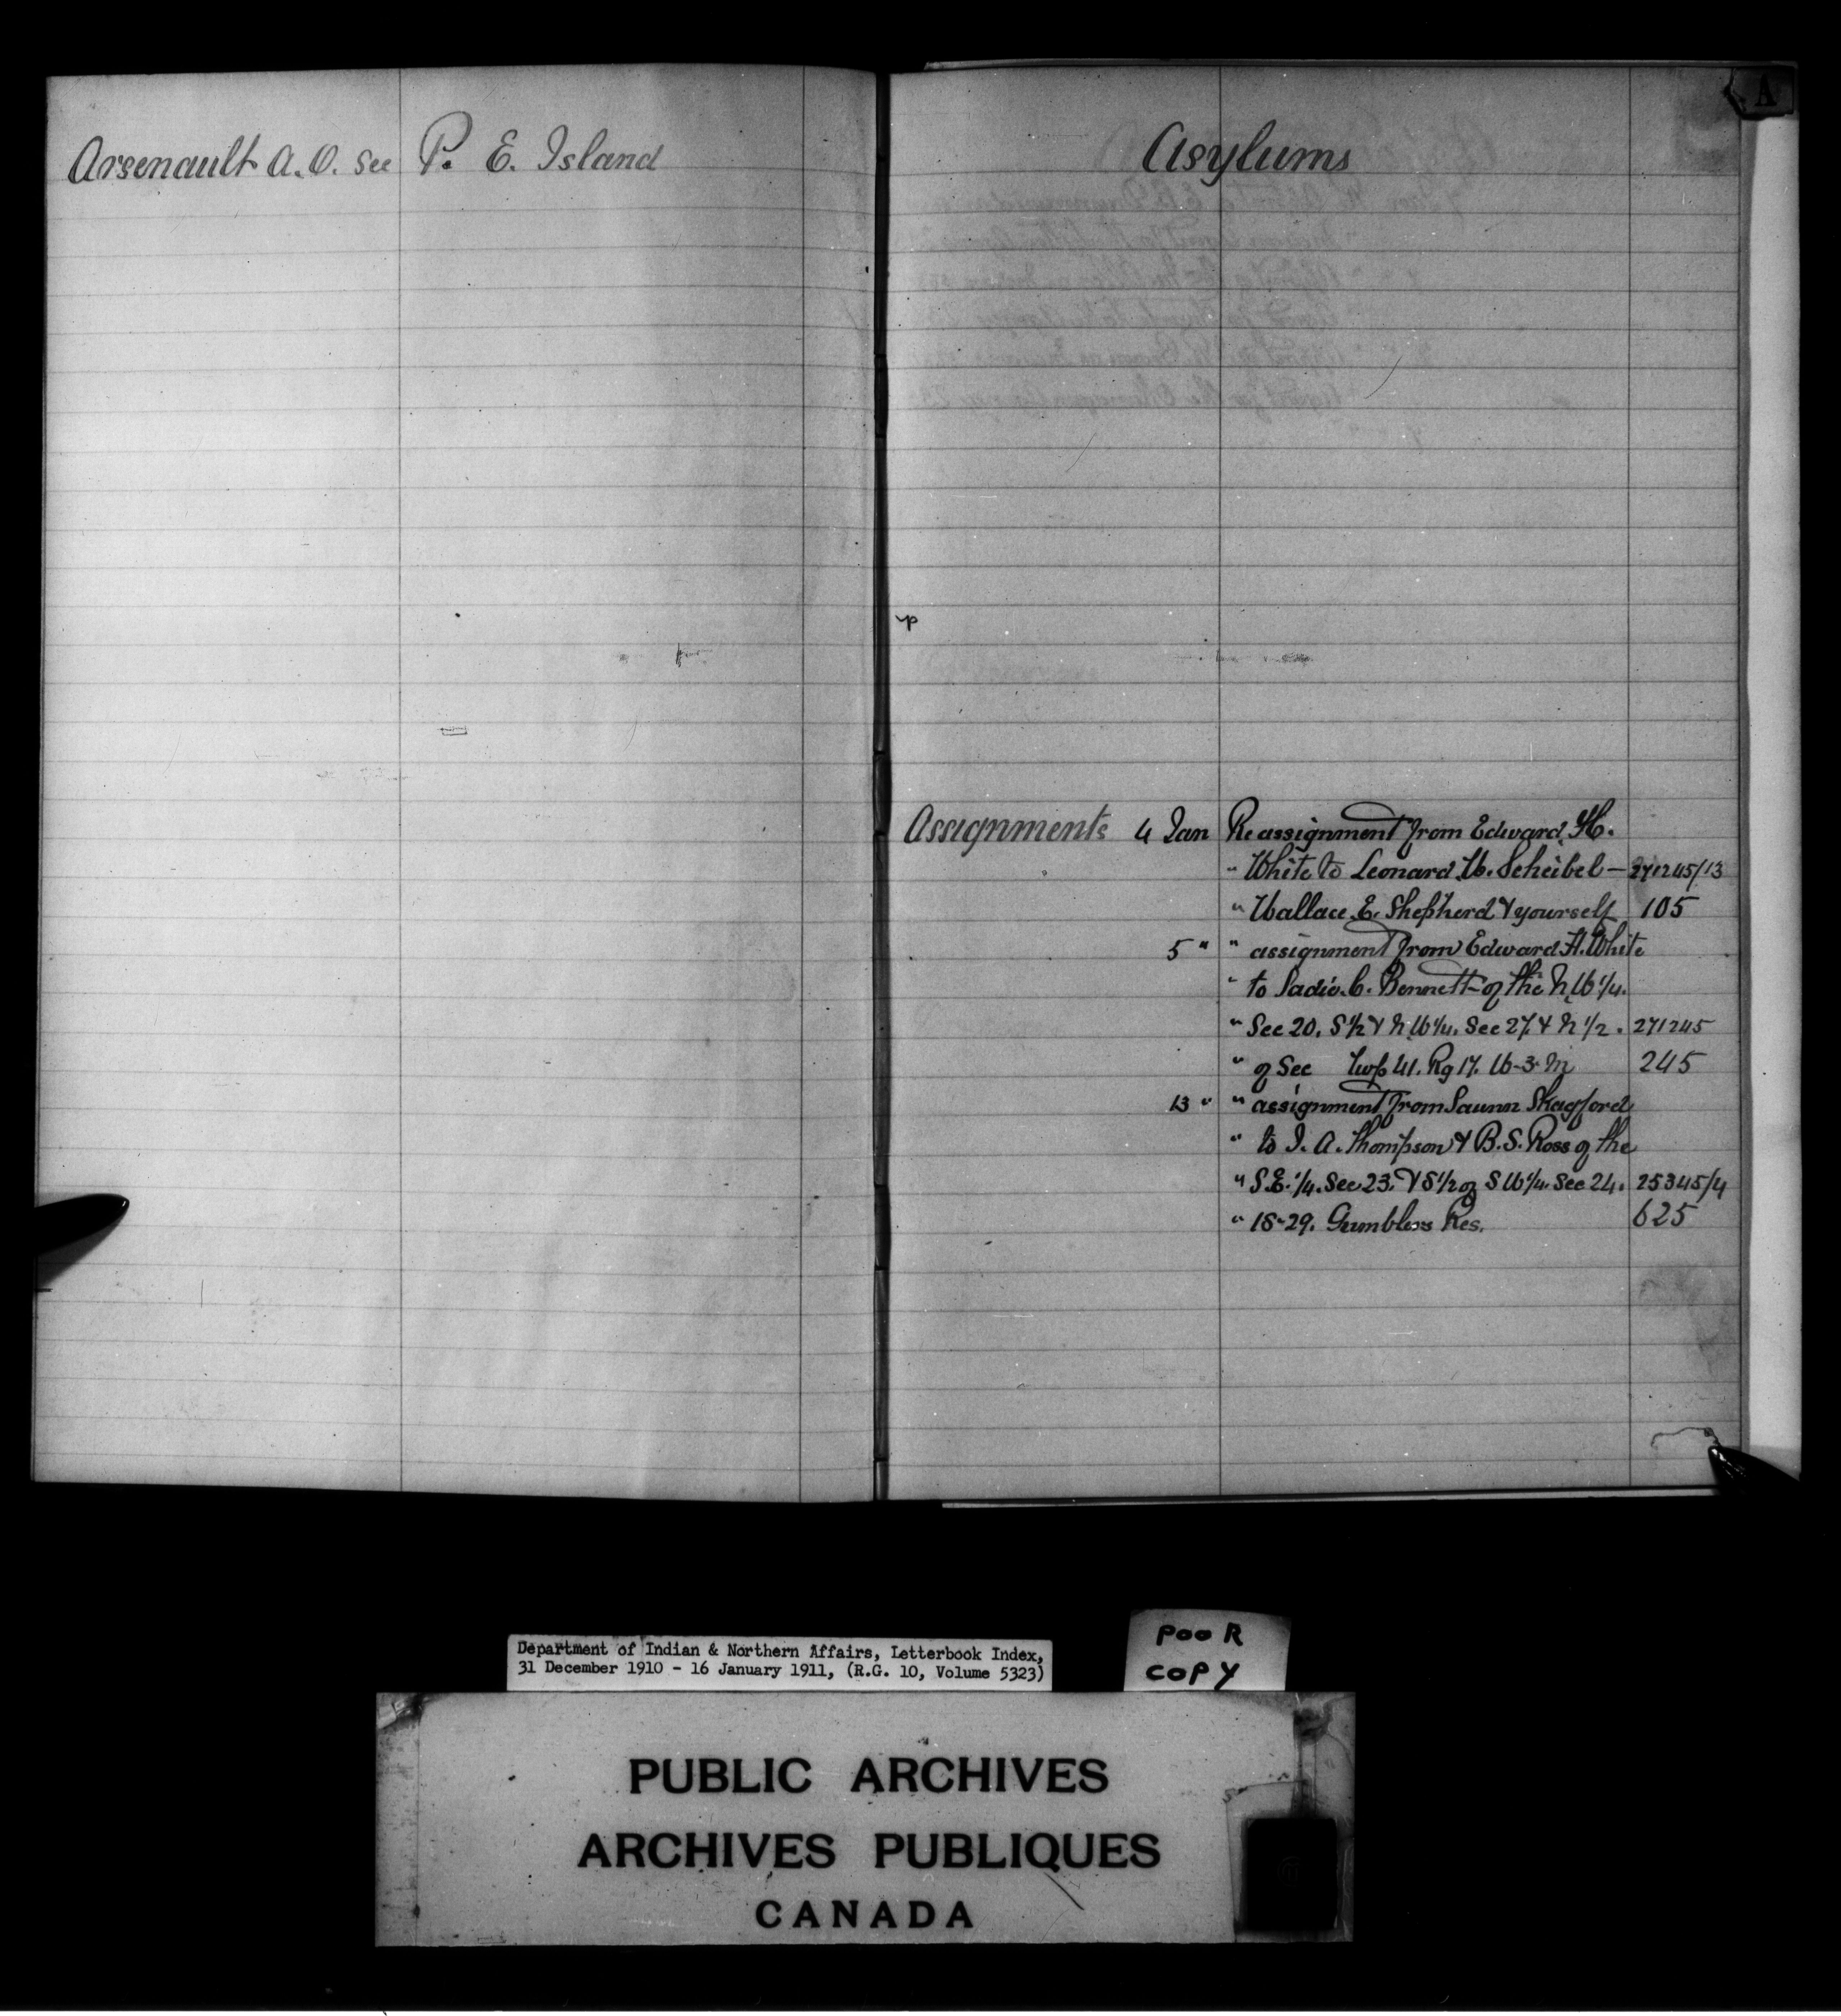 Arsenault A. O. see P. E. Island
A
Asylums
Assignments 4 Jan Re assignment from Edward H.
" White to Leonard W. Scheibel — 271245/13
" Wallace E. Shepherd & yourself 105
5 " " assignment from Edward H. White
" to Sadie C. Bennett of the N W 1/4.
" Sec 20. S 1/2 & N W 1/4. Sec 27. & N 1/2. 271245
" of Sec Twp 41. Rg 17. W-3-M 245
13 " " assignment from Skagford
" to J. A. Thompson & B. S. Ross of the
" S.E. 1/4. Sec 23. & S 1/2 of S W 1/4. Sec 24. 25345/4
" 18-29. Gamblers Res. 625
Department of Indian & Northern Affairs, Letterbook Index,
31 December 1910 - 16 January 1911, (R.G. 10, Volume 5323)
POOR
COPY
PUBLIC ARCHIVES
ARCHIVES PUBLIQUES
CANADA